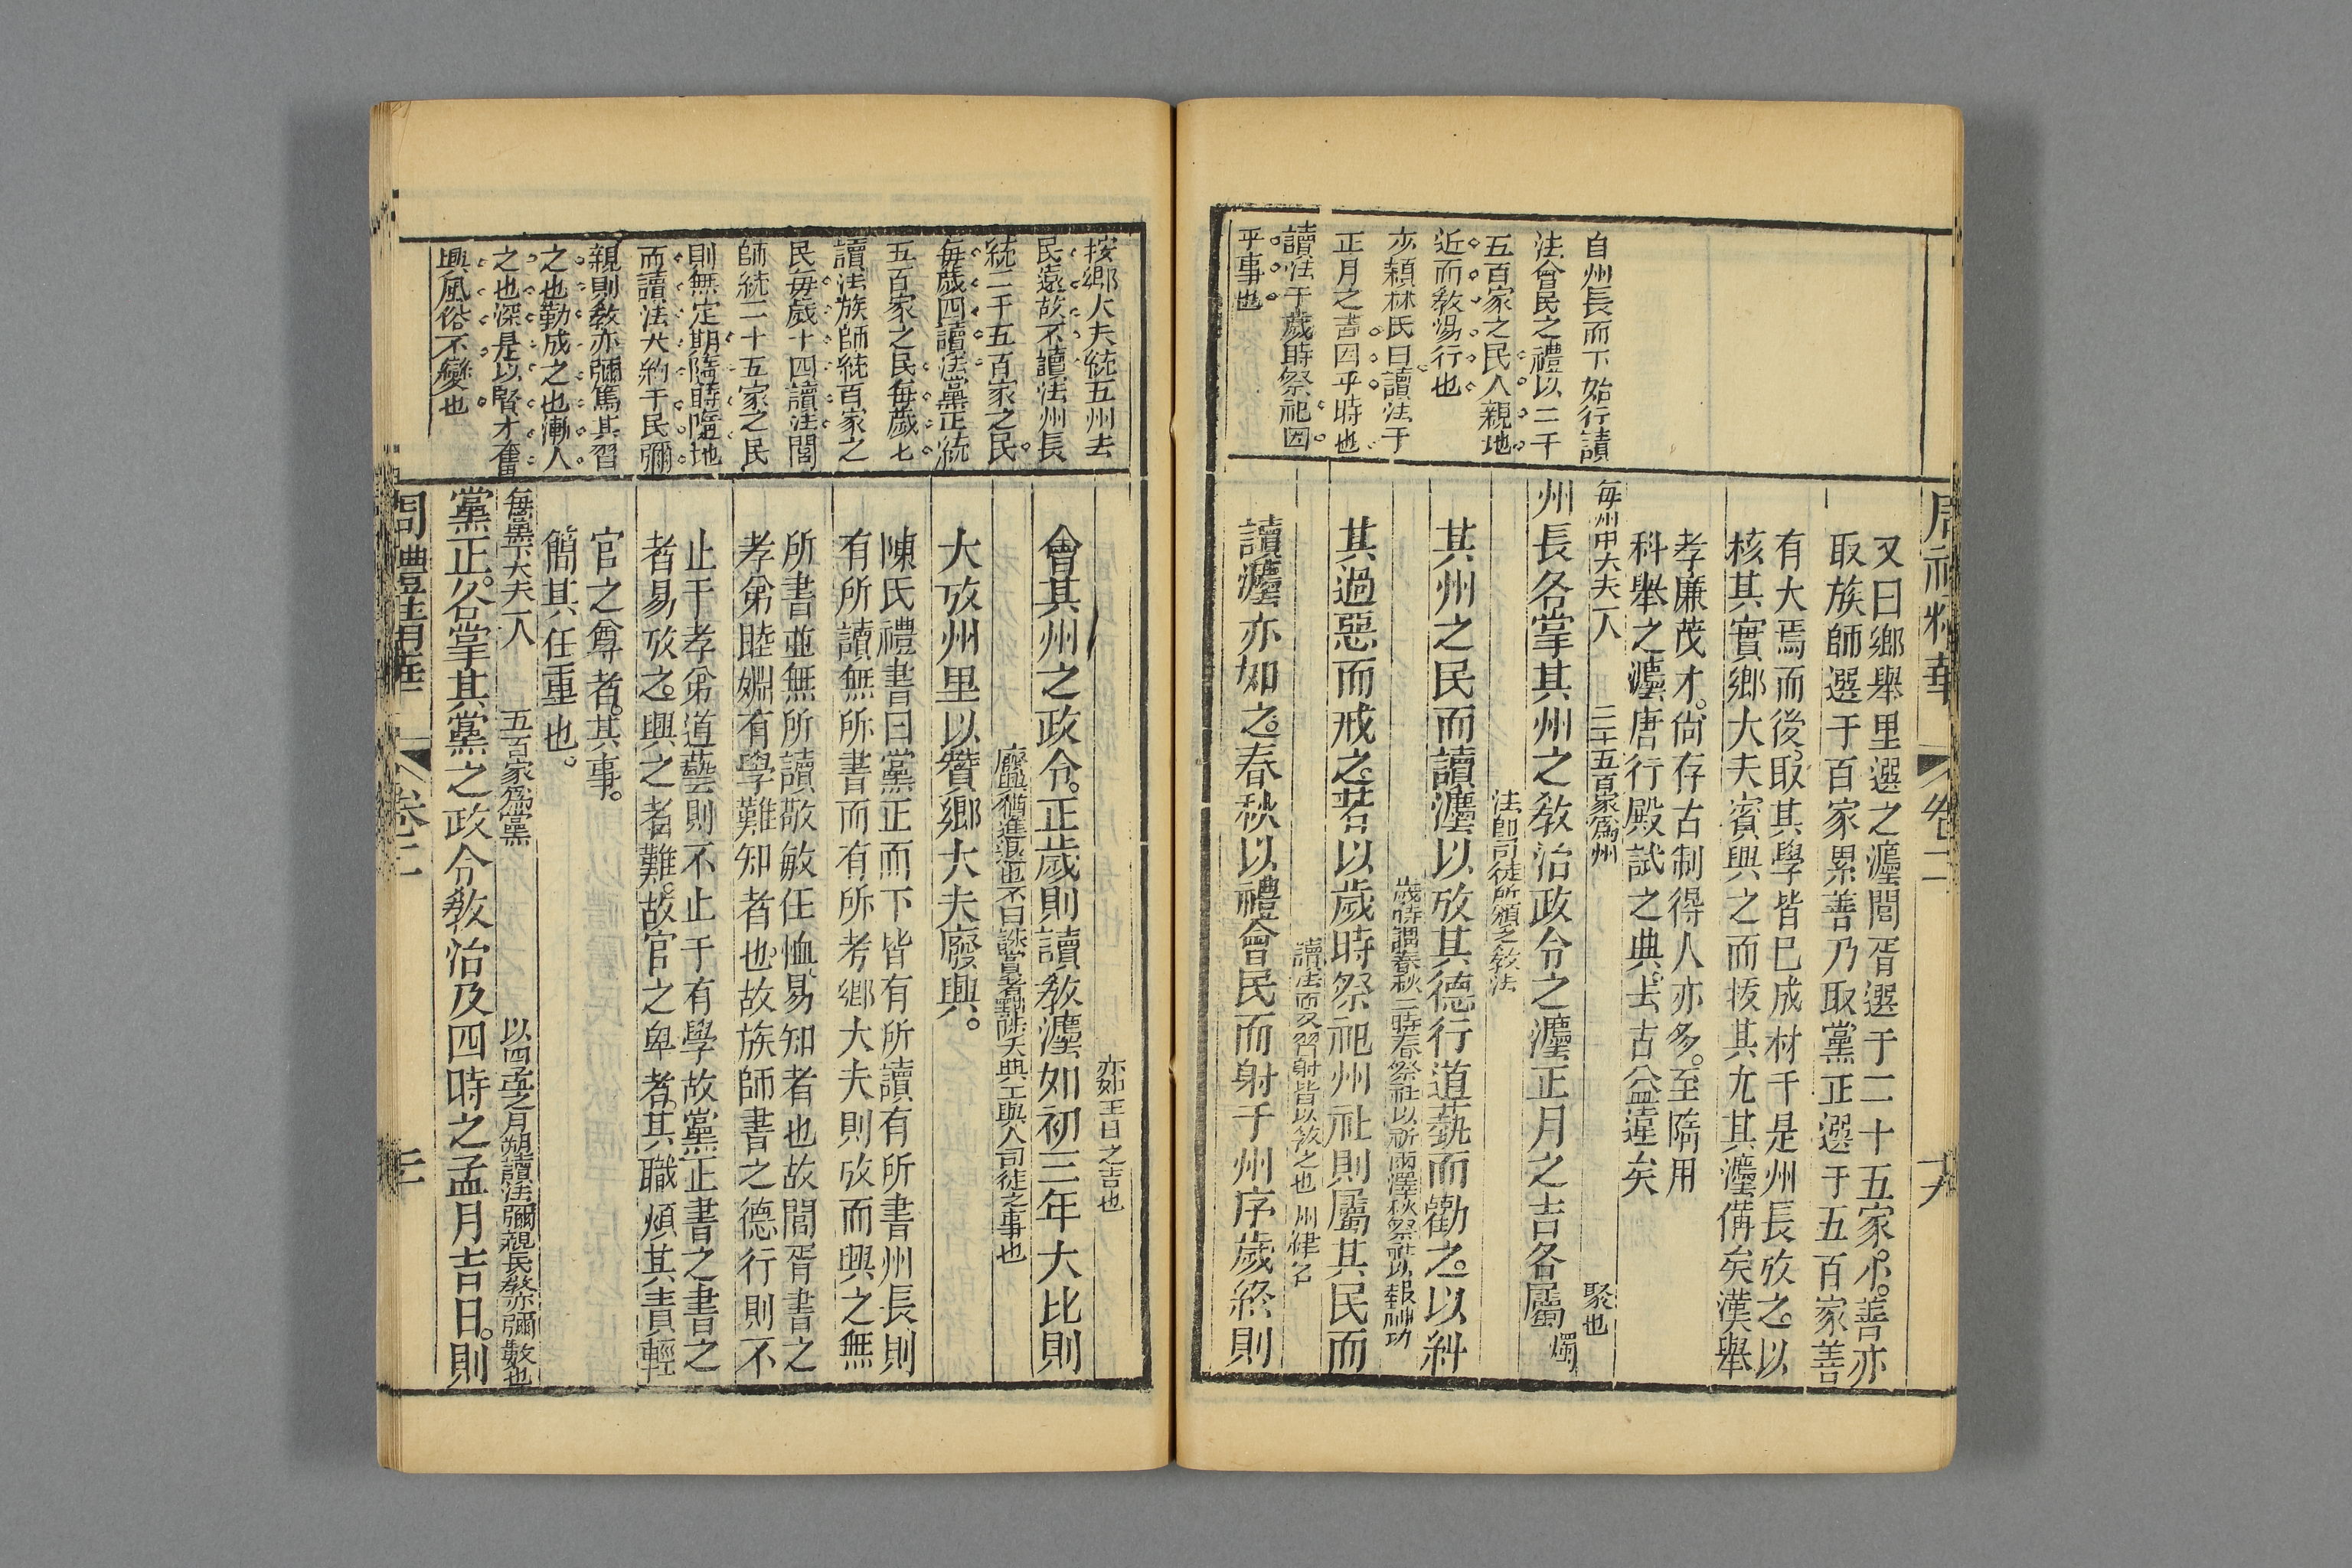 周禮精華
卷二
十九
自州長而下始行讀
法會民之禮以二千
五百家之民人親地
近而敎易行也
亦穎林氏曰讀法于
正月之吉因乎時也
讀法于歲時祭祀因
乎事也
又曰鄉舉里選之灋閭胥選于二十五家尒善亦
取族師選于百家累善乃取黨正選于五百家善
有大焉而後取其學皆巳成材于是州長攷之以
核其實鄉大夫賓興之而拔其尤其灋備矣漢舉
孝廉茂才尙存古制得人亦多至隋用
科舉之灋唐行殿試之典去古益遠矣
每州中大夫一人
二千五百家爲州
聚也
州長各掌其州之敎治政令之灋正月之吉各屬
燭
法卽司徒所頒之敎法
其州之民而讀灋以攷其德行道藝而勸之以糾
歲時謂春秋二時春祭社以祈雨澤秋祭社以報神功
其過惡而戒之若以歲時祭祀州社則屬其民而
讀法而又習射皆以敎之也
讀灋亦如之春秋以禮會民而射于州序歲終則
按鄉大夫統五州去
民遠故不讀法州長
統二千五百家之民
每歲四讀法黨正統
五百家之民每歲七
讀法族師統百家之
民每歲十四讀法閭
師統二十五家之民
則無定期隨時隨地
而讀法大約于民彌
親則敎亦彌篤其習
之也勤成之也漸人
之也深是以賢才奮
興風俗不變也
亦如正日之吉也
會其州之政令正歲則讀敎灋如初三年大比則
廢興猶進退也
大攷州里以贊鄉大夫廢興
陳氏禮書曰黨正而下皆有所讀有所書州長則
有所讀無所書而有所考鄉大夫則攷而興之無
所書並無所讀敬敏任恤易知者也故閭胥書之
孝弟睦婣有學難知者也故族師書之德行則不
止于孝弟道藝則不止于有學故黨正書之書之
者易攷之興之者難故官之卑者其職煩其責輕
官之尊者其事
簡其任重也
每黨下大夫一人
五百家爲黨
以四孟之月朔讀法彌親民敎亦彌數也
黨正各掌其黨之政令敎治及四時之孟月吉日則
周禮精華
卷二